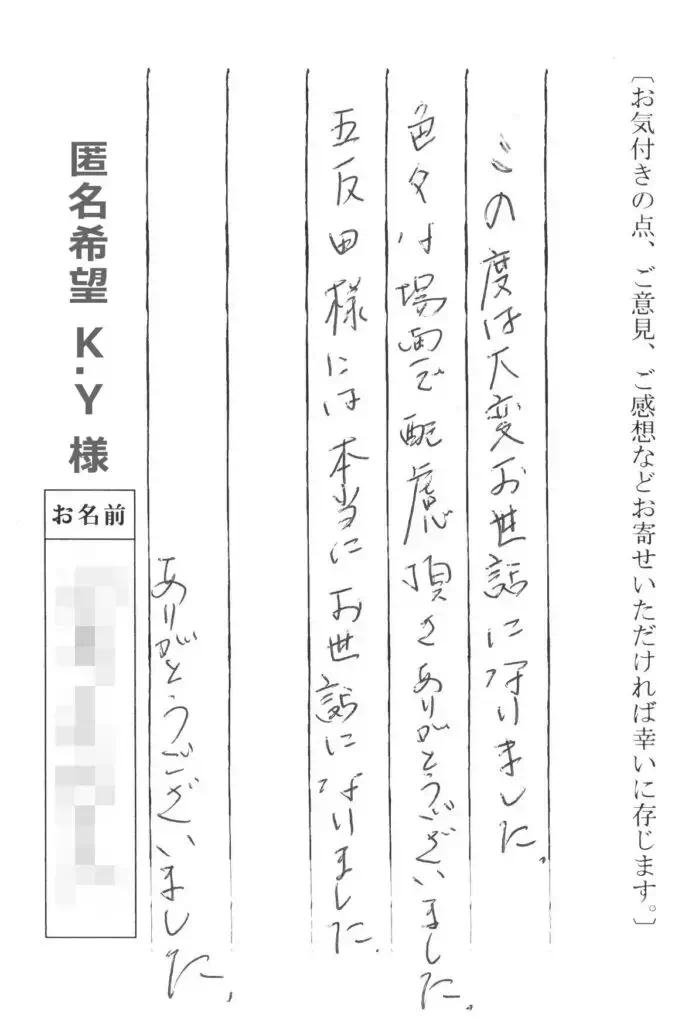 〔お気付きの点、ご意見、ご感想などお寄せいただければ幸いに存じます。〕
この度は大変お世話になりました。
色々な場面で配慮頂きありがとうございました。
五反田様には本当にお世話になりました。
ありがとうございました。
匿名希望 K.Y 様
お名前